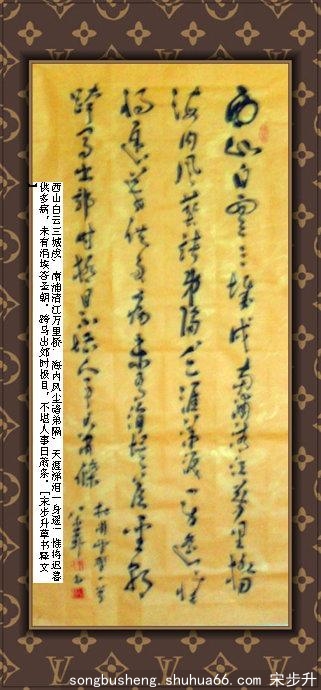 西山白雪三城戍南浦清江万里桥
海内风尘诸弟隔天涯涕泪一身遥惟
将迟暮供多病未有涓埃答圣朝
跨马出郊时极目不堪人事日萧条
杜甫野望一首
西山白云三城戍，南浦清江万里桥，海内风尘诸弟隔，天涯涕泪一身遥，惟将迟暮
供多病，未有涓埃答圣朝，跨马出郊时极目，不堪人事日萧条。［宋步升草书释文
songbusheng. shuhua66. com 宋步升